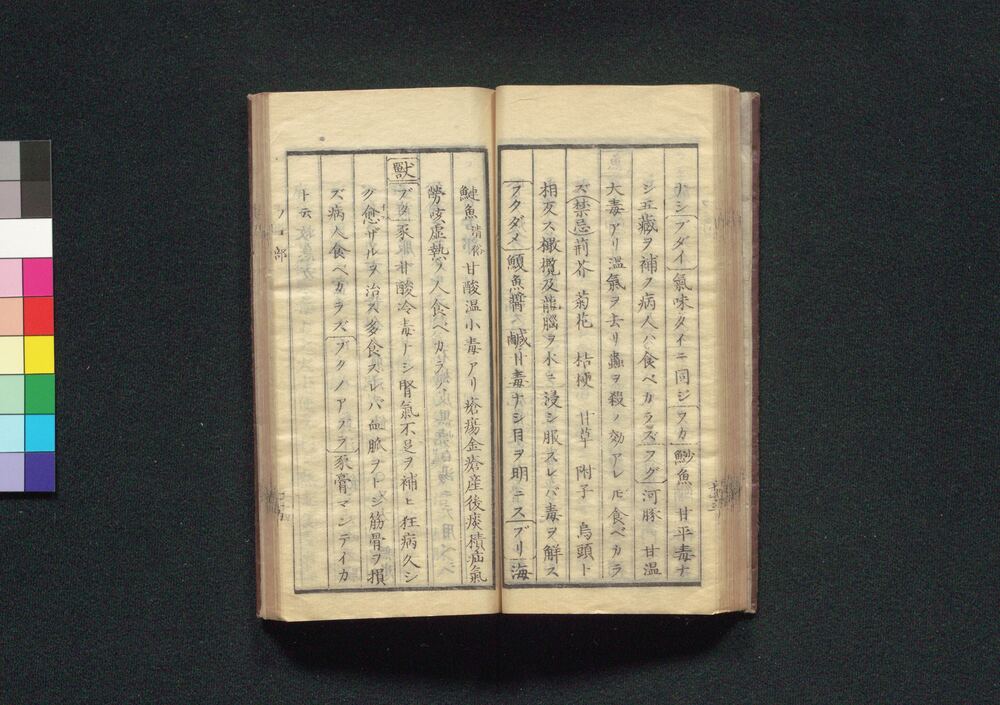 ナシブダイ氣味タイニ同ジフカ鯋魚 甘平毒ナ
シ五臓ヲ補フ病人ハ食ベカラズフグ河豚 甘温
大毒アリ温氣ヲ去リ蟲ヲ殺ノ効アレ𪜈食ベカラ
ズ禁忌荊芥 菊花 桔梗 甘草 附子 烏頭ト
相反ス橄欖及龍腦ヲ水ニ浸シ服スレバ毒ヲ解ス
フクダメ鰒魚醬 鹹甘毒ナシ目ヲ明ニスブリ海
鰱魚清俗甘酸温小毒アリ瘡瘍金瘡産後痰積疝氣
勞咳虚熱ノ人食ベカラズ
獸ブタ豕 甘酸冷毒ナシ腎氣不足ヲ補ヒ狂病久シ
ク愈ザルヲ治ス多食スレバ血脈ヲトジ筋骨ヲ損
ズ病人食ベカラズブタノアブラ豕膏マンテイカ
ト云
フ 部